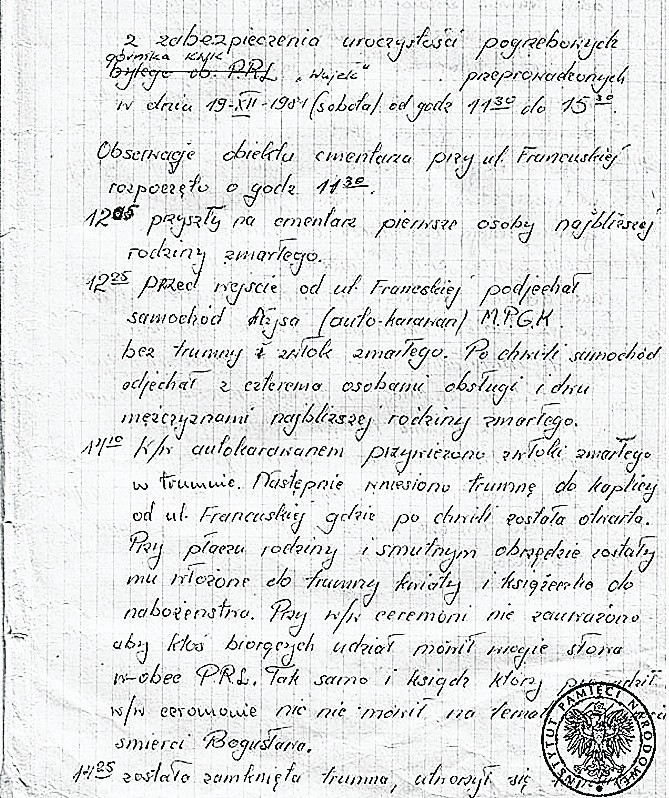 z zabezpieczenia uroczystości pogrzebowych
górnika KWK
byłego ob. PRL „Wujek" przeprowadzonych
w dniu 19-XII-1981 (sobota) od godz 11³⁰ do 15³⁰.
Obserwacje obiektu cmentarza przy ul. Francuskiej
rozpoczęto o godz 11³⁰.
12⁰⁵ przyszły na cmentarz pierwsze osoby najbliższej
rodziny zmarłego.
12²⁵ Przed wejście od ul. Francuskiej podjechał
samochód Nysa (auto-karawan) M.P.G.K.
bez trumny i zwłok zmarłego. Po chwili samochód
odjechał z czterema osobami obsługi i dwu
mężczyznami najbliższej rodziny zmarłego.
14¹⁰ K/w autokarawanem przywieziono zwłoki zmarłego
w trumnie. Następnie wniesiono trumnę do kaplicy
od ul. Francuskiej gdzie po chwili została otwarta.
Przy płaczu rodziny i smutnym obrzędzie zostały
mu włożone do trumny kwiaty i książeczka do
nabożenstwa. Przy w/w ceremoni nie zauważono
aby ktoś biorących udział mówił wrogie słowa
w-obec P.R.L. Tak samo i ksiądz który
w/w ceromonie nic nie mówił na temat
smierci Bogusława.
14²⁵ została zamknięta trumna, utworzył się
INSTYTUT PAMIĘCI NARODOWEJ